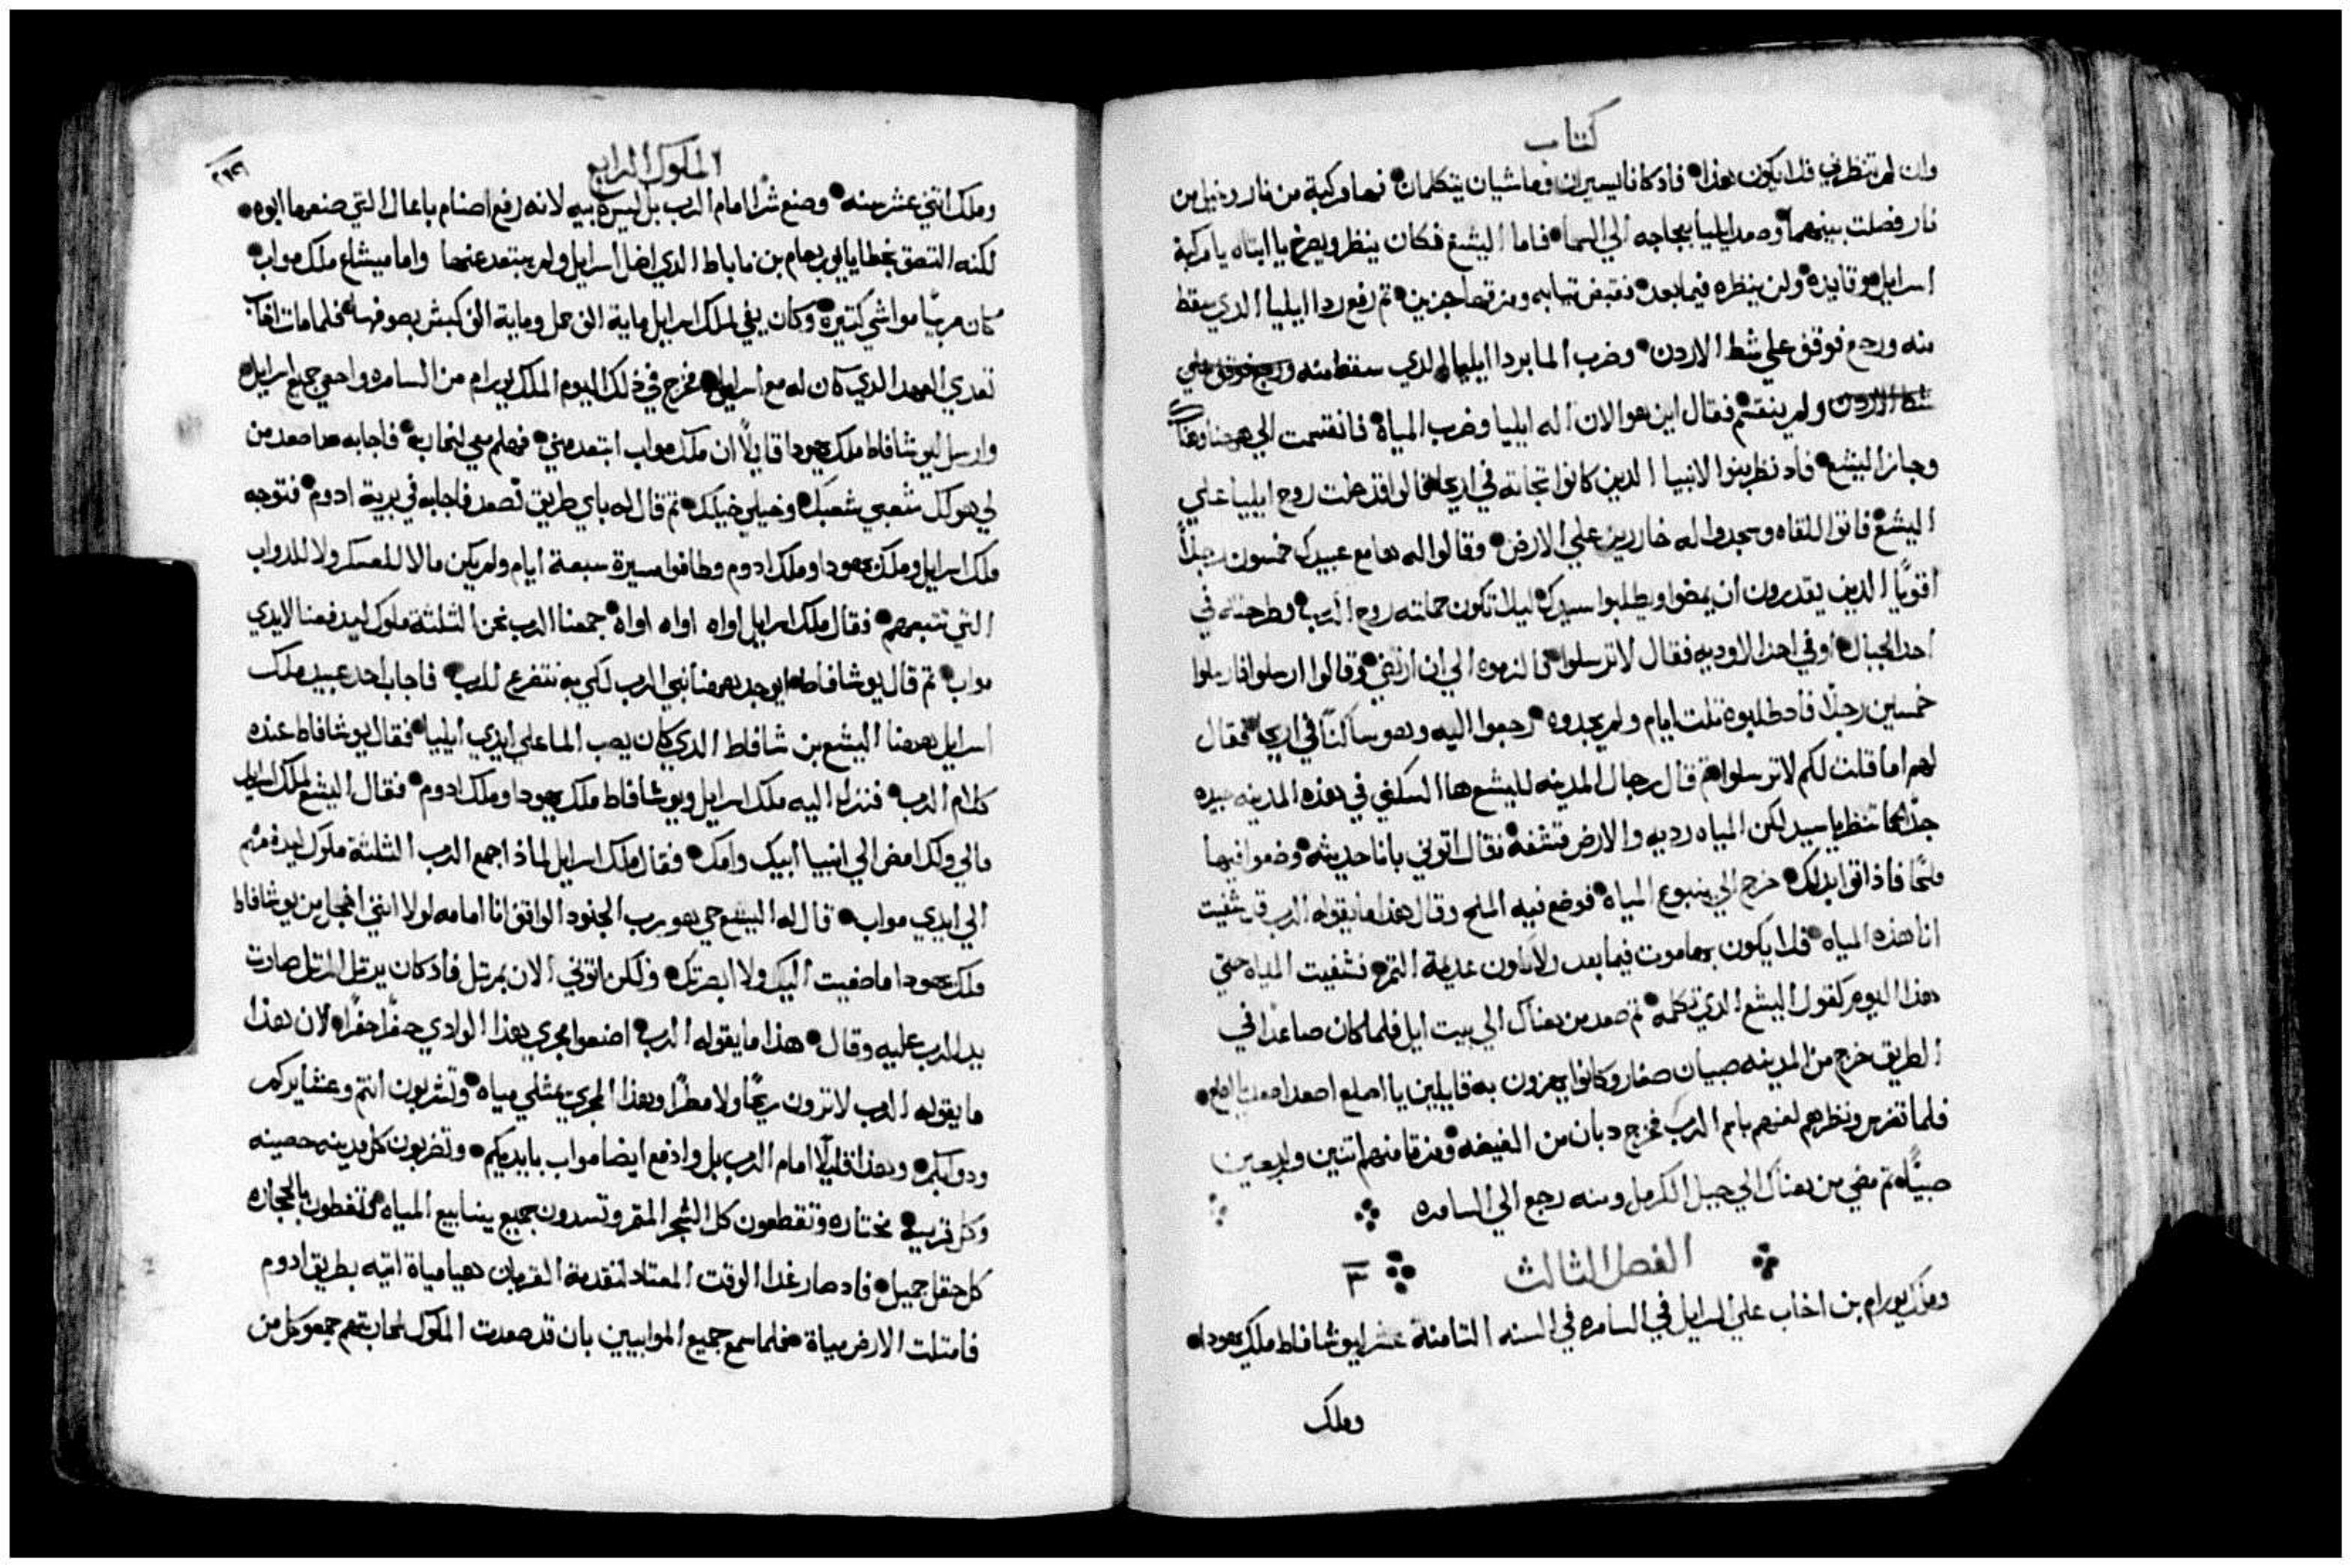 كتاب
وان لم تنظرني فلا يكون هذا فاذ كانا يسيران وماشيان يتكلمان فها مركبة من نار وخيل من
نار فصلت بينهما وصعد ايليا بعجاجه الي السما فاما اليشع فكان ينظر ويصرخ يا ابتاه يا مركبة
اسراييل وقايده ولن ينظره فيما بعد فقبض تيابه ومزقها جزين تم رفع ردا ايليا الدي سقط
منه ورجع فوقف علي شط الاردن وضرب الما بردا ايليا الدي سقط منه ورجع فوقف علي
شط الاردن ولم ينقسم فقال اين هو الان اله ايليا وضرب المياة فانقسمت الي هنا وهناك
وجاز اليشع فاد نظر بنوا الانبيا الدين كانوا تجاته في اريحا قالوا قد حلت روح ايليا علي
اليشع فاتوا للقاه وسجدوا له خاررين علي الارض وقالوا له ها مع عبيدك خمسون رجلاً
اقوياً الدين يقدرون ان يمضوا ويطلبوا سيدك ليلا تكون حملته روح الرب وطرحته في
احد الجبال اوفي احد الاوديه فقال لا ترسلوا فالزموه الي ان ارتضي وقالوا ارسلوا فارسلوا
خمسين رجلاً فاد طلبوه تلت ايام ولم يجدوه رجعوا اليه وهو ساكناً في اريحا فقال
لهم اما قلت لكم لا ترسلوا تم قال رجال المدينه لليشع ها السكني في هذه المدينه جيده
جداً كما تنظر يا سيد لكن المياه رديه والارض قشفة فقال اتوني بانا حديثه وضعوا فيها
ملحاً فاذ اتوا بدلك خرج الي ينبوع المياة فوضع فيه الملح وقال هذا ما يقوله الرب قد شفيت
انا هذه المياه فلا يكون بها موت فيما بعد ولا تكون عديمة التمر فشفيت المياه حتي
هذا اليوم كقول اليشع الدي تكلمه تم صعد من هناك الي بيت ايل فلما كان صاعداً في
الطريق خرج من المدينه صبيان صغار وكانوا يهزون به قايلين يا اصلع اصعد اصعد يا اصلع
فلما تفرس ونظرهم لعنهم باسم الرب فخرج دبان من الغيضه ومزقا منهم اتنين واربعين
صبياً تم مضي من هناك الي جبل الكرمل ومنه رجع الي السامره
الفصل التالت ٣
وملك يورام بن اخاب علي اسراييل في السامره في السنه التامنة عشر ليوشافاط ملك يهودا
وملك
الملوك الرابع
وملك اتني عشر سنه وصنع شراً امام الرب بل ليس كابيه لانه رفع اصنام باعال التي صنعها ابوه
لكنه التصق بخطايا يوربعام بن ناباط الدي اضل اسراييل ولم يبتعد عنها واما ميشاع ملك مواب
كان مربياً مواشي كتيرة وكان يفي لملك اسراييل ماية الف حمل وماية الف كبش بصوفها فلما مات اخاب
تعدي العهد الدي كان له مع اسراييل فخرج في ذلك اليوم الملك يورام من السامره واحصي جميع اسراييل
وارسل ليوشافاط ملك يهودا قايلاً ان ملك مواب ابتعد مني فهلم معي لنحاربه فاجابه ها اصعد من
لي هو لك شعبي شعبك وخيلي خيلك تم قال له باي طريق نصعد فاجابه في برية ادوم فتوجه
ملك اسراييل وملك يهودا وملك ادوم وطافوا مسيرة سبعة ايام ولم يكن ما لا للعسكر ولا للدواب
التي تتبعهم فقال ملك اسراييل اواه اواه اواه جمعنا الرب نحن التلتة ملوك ليدفعنا لايدي
مواب تم قال يوشافاط ايوجد ههنا نبي الرب لكي به نتضرع للرب فاجاب احد عبيد ملك
اسراييل ههنا اليشع بن شافاط الدي كان يصب الما علي ايدي ايليا فقال يوشافاط عنده
كلام الرب فنزل اليه ملك اسراييل ويوشافاط ملك يهودا وملك ادوم فقال اليشع لملك اسراييل
مالي ولك امض الي انبيا ابيك وامك فقال ملك اسراييل لماذا جمع الرب التلتة ملوك ليدفعهم
الي ايدي مواب قال له اليشع حي هو رب الجنود الواقف انا امامه لولا انني اخجل من يوشافاط
ملك يهودا ما صغيت اليك ولا ابصرتك ولكن اتوني الان بمرتل فاذ كان يرتل المرتل صارت
يد الرب عليه وقال هذا ما يقوله الرب اصنعوا مجري هذا الوادي حفراً حفراً لان هذا
ما يقوله الرب لا ترون ريحاً ولا مطراً وهذا المجري يمتلي مياه وتشربون انتم وعشايركم
ودوابكم وهذا قليلاً امام الرب بل وادفع ايضا مواب بايديكم وتضربون كل مدينه حصينه
وكل قريه مختاره وتقطعون كل الشجر المتمر وتسدون جميع ينابيع المياه وتغطون بالحجاره
كل حقل جميل فاد صار غدا الوقت المعتاد لتقدمة القربان هيا مياة اتيه بطريق ادوم
فامتلت الارض مياة فلما سمع جميع الموابيين بان قد صعدت الملوك لمحاربتهم جمعو كل من